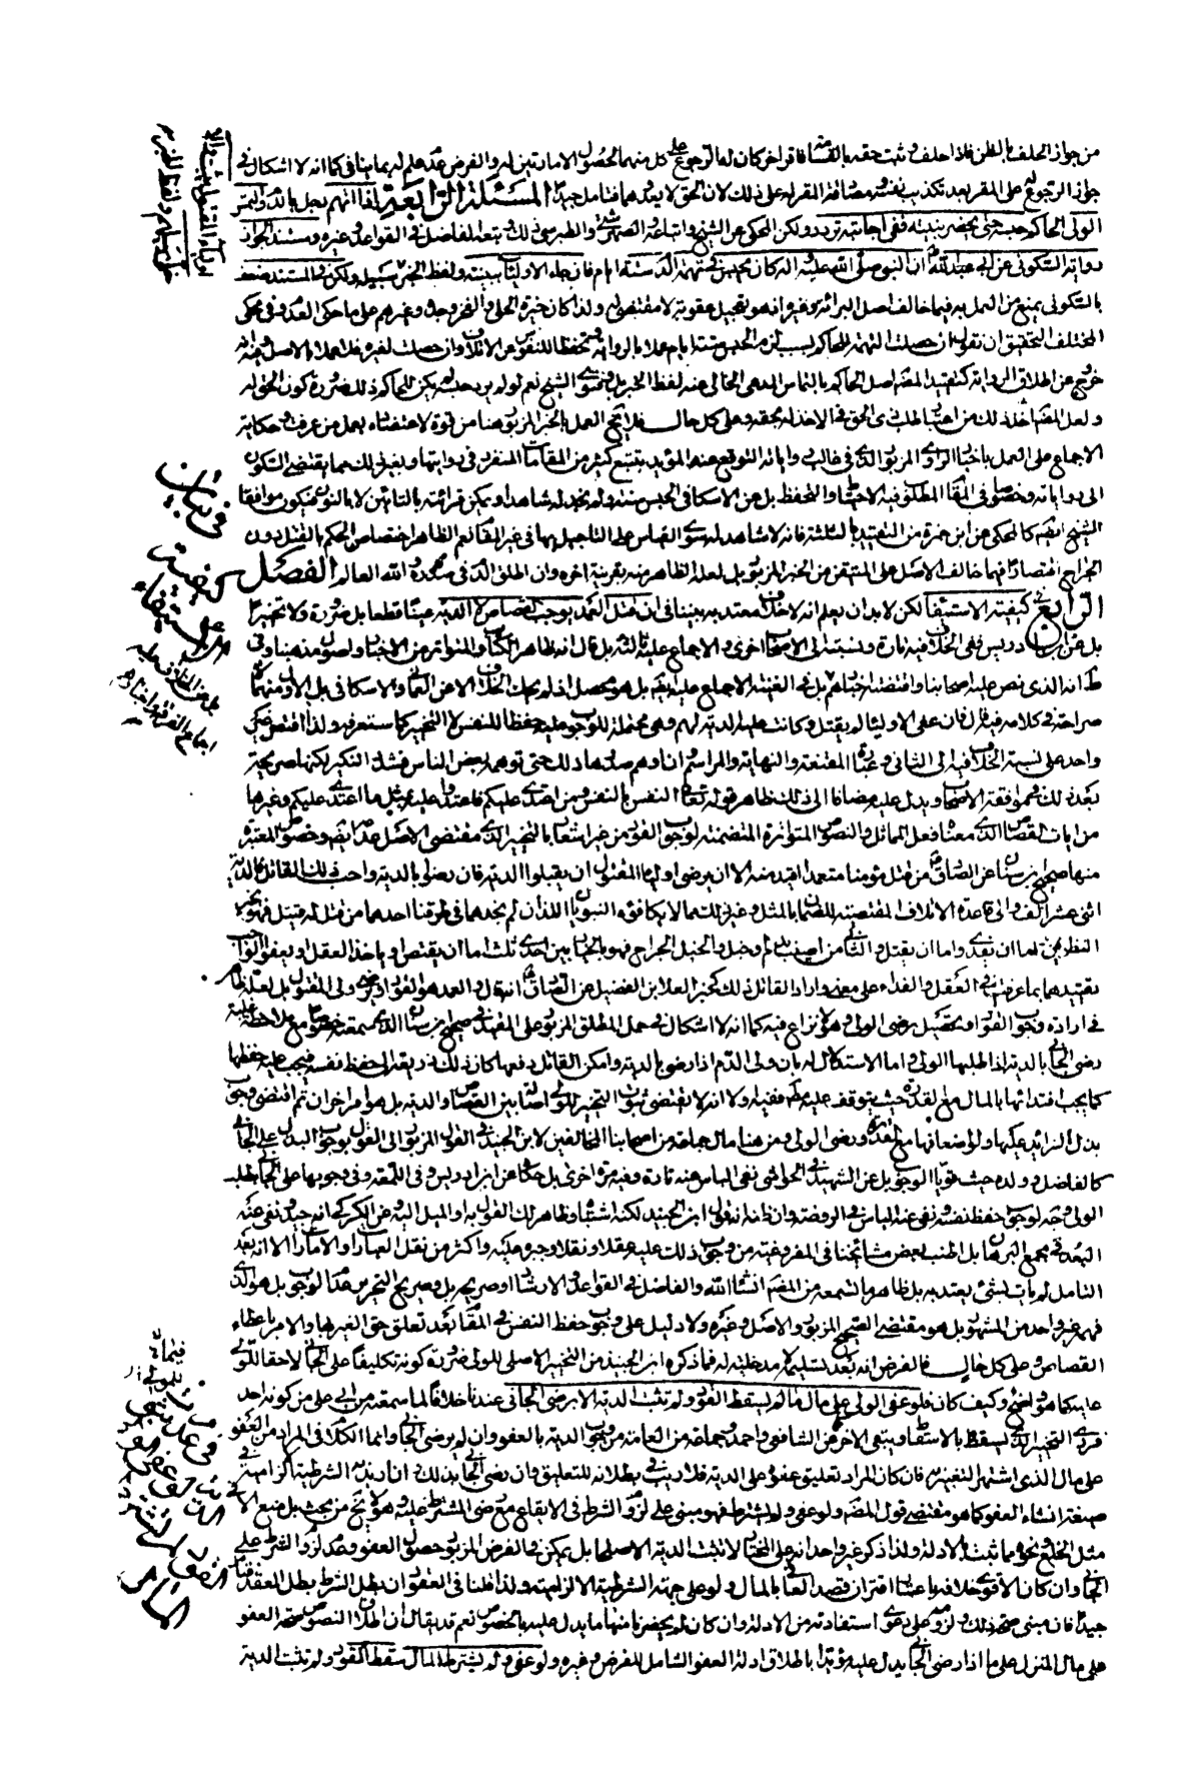 من جواز الحلف بالظن فاذا حلف وثبت حقه بالقسامة فاقر اخر كان له الرجوع على كل منهما لحصول الامارتين له والفرض عدم علم له بما ينافى كما انه لا اشكال فى
جواز الرجوع على المقر بعد تكذيب نفسه ومصادقة المقر له على ذلك لان الحق لا يعدوهما فتامل جيدا المسئلة الرابعة اذا اتهم رجل بالدم والتمس
الولى من الحاكم حبسه حتى يحضر ببينته ففى اجابته تردد ولكن المحكى عن الشيخ واتباعه والصهرشتى والطبرسى ذلك وتبعه الفاضل فى القواعد وغيره ومستند الجواز
رواية السكونى عن ابى عبد الله ان النبى صلى الله عليه واله كان يحبس فى تهمة الدم ستة ايام فان جاء الاولياء ببينة ولفظ الخبر سبيله ولكن فى المستند ضعف
بالسكونى يمنع من العمل به فيما خالف اصل البرائة وغيره اذ هو تعجيل عقوبة لا مقتضى له ولذا كان خيرة الحلى والفخر وجده وغيرهم على ما حكى العدم وفى محكى
المختلف التحقيق ان نقول ان حصلت التهمة للحاكم بسبب لزم الحبس ستة ايام عملا بالرواية وتحفظا للنفوس عن الاتلاف وان حصلت لغيره فلا عملا بالاصل وفيه انه
خروج عن اطلاق الرواية كتقييد المصنف اصل الحكم بالتماس المدعى الخالى عنه لفظ الخبر بل وفتوى الشيخ نعم لو لم يرد حبسه لم يكن للحاكم ذلك ضرورة كون الحق له
ولعل المصنف اخذ ذلك من اعتبار طلب ذى الحق فى الاخذ له بحقه وعلى كل حال فلا يتجه العمل بالخبر المزبور هنا من قوة لاعتضاده بعمل من عرفت وحكاية
الاجماع على العمل باخبار الراوى المزبور الذى فى غالب رواياته النوفلى عنه المؤيد بتتبع كثير من المقامات المنفرد فى روايتها ولغير ذلك مما يقتضى السكون
الى رواياته وخصوصا فى المقام المطلوب فيه الاحتياط والتحفظ بل عن الاسكافى الحبس سنة ولم نجد له شاهدا ويمكن قرائته بالتائين لا بالنون فيكون موافقا
للشيخ ايضا كالمحكى عن ابن حمزة من التقييد بالثلثة فانه لا شاهد له سوى القياس على التاجيل بها فى غير المقام نعم الظاهر اختصاص الحكم بالقتل دون
الجراح اقتصارا فيما خالف الاصل على المتيقن من الخبر المزبور بل لعله الظاهر منه بقرينة اخره وان اطلق الدم فى صدره والله العالم الفصل
الرابع فى كيفية الاستيفاء لكن لا بد ان يعلم انه لا خلاف معتد به بيننا فى ان قتل العمد يوجب القصاص لا الدية عينا قطعا بل ضرورة ولا تخييرا
بل عن ابن ادريس نفى الخلاف فيه تارة ونسبته الى الاصحاب اخرى والاجماع عليه ثالثة بل قال انه ظاهر الكتاب والمتواتر من الاخبار واصول مذهبنا وفى
ط انه الذى نص عليه اصحابنا واقتضته اخبارهم بل عن الغنية الاجماع عليه ايضا بل هو محصل اذ لم يحك الخلاف الا عن العمانى والاسكافى بل الاول منهما لا
صراحة فى كلامه فيه قال فان عفى الاولياء لم يقتل وكانت عليه الدية لهم وهى محتملة للوجوب عليه حفظا للنفس لا التخيير كما ستعرفه ولذا اقتصر غير
واحد على نسبة الخلاف فيه الى الثانى وعبارة المقنعة والنهاية والمراسم وان اوهم صدرها ذلك حتى توهمه بعض الناس فشدد النكير لكنها صريحة
بعد ذلك فى موافقة الاصحاب ويدل عليه مضافا الى ذلك ظاهر قوله تعالى النفس بالنفس ومن اعتدى عليكم فاعتدوا عليه بمثل ما اعتدى عليكم وغيرها
من ايات القصاص الذى معناه فعل المماثل والنصوص المتواترة المتضمنة لوجوب القود من غير اشعار بالتخيير الذى مقتضى الاصل عدمه ايضا وخصوص المعتبرة
منها صحيح ابن سنان عن الصادق من قتل مؤمنا متعمدا اقيد منه الا ان يرضى اولياء المقتول ان يقبلوا الدية فان رضوا بالدية واحب ذلك القاتل فالدية
اثنى عشر الف والى قاعدة الاتلاف المقتضية للضمان بالمثل وغير ذلك مما لا يكافؤه النبويان اللذان لم نجدهما فى طرقنا احدهما من قتل له قتيل فهو بخير
النظرين اما ان يفدى واما ان يقتل والثانى من اصيب بدم او خبل والخبل الجراح فهو بالخيار بين احدى ثلث اما ان يقتص او ياخذ العقل او يعفو الواجب
تقييدهما بما عرفت من العقل والفداء على معنى واراد القاتل ذلك كخبر العلا بن الفضيل عن الصادق انه قال والعمد هو القود او رضى ولى المقتول بل لعله ظاهر
فى ارادة وجوب القود او تحصيل رضى الولى وهو لا نزاع فيه كما انه لا اشكال فى حمل المطلق المزبور على المقيد فى صحيح ابن سنان الذى سمعته خصوصا مع ملاحظة غلبة
رضى الجانى بالدية اذا طلبها الولى اما الاستدلال له بان ولى الدم اذا رضى بالدية وامكن القاتل دفعها كان ذلك ذريعة الى حفظ نفسه فيجب عليه حفظها
كما يجب افتدائها بالمال مع القدرة حيث يتوقف عليه ففيه اولا انه لا يقتضى ثبوت التخيير للولى اصالة بين القصاص والدية بل هو امر اخر ان تم اقتضى وجوب
بذل الزائد عليها ولو اضعافها مع القدرة ورضى الولى ومن هنا مال جماعة من اصحابنا المخالفين لابن الجنيد فى القول المزبور الى القول بوجوب البذل على الجانى
كالفاضل وولده حيث قويا الوجوب بل عن الشهيد فى الحواشى نفى الباس عنه تارة وفيه قوة اخرى بل حكى عن ابن ادريس وفى اللمعة وفى وجوبها على الجانى بطلب
الولى وجه لوجوب حفظ نفسه ونفى عنه الباس فى الروضة وان ظن انه قول ابن الجنيد لكنه اشتباه وظاهر لك القول به او الميل اليه وعن الكركى انه جيد ونفى عنه
البعد فى مجمع البرهان بل اطنب بعض مشائخنا فى المفروغية من وجوب ذلك عليه عقلا ونقلا وجبره عليه واكثر من نقل العبارات والامارات الا انه بعد
التامل لم يات بشئ يعتد به بل ظاهر ما تسمعه من المصنف انشاء الله والفاضل فى القواعد والارشاد او صريحه بل وصريح التحرير عدم الوجوب بل هو الذى
فهمه غير واحد من المشهور بل هو مقتضى الصحيح المزبور والاصل وغيره ولا دليل على وجوب حفظ النفس فى المقام بعد تعلق حق الغير بها والامر باعطاء
القصاص وعلى كل حال فالفرض انه بعد تسليمه لا مدخلية له فيما ذكره ابن الجنيد من التخيير الاصلى للولى ضرورة كونه تكليفا على الجانى لاحقا للولى
عليه كما هو واضح وكيف كان فلو عفى الولى على مال لم يسقط القود ولم تثبت الدية الا برضى الجانى عندنا خلافا لما سمعته من ابى على من كونه احد
فردى التخيير الذى يسقط بالاسقاط ويبقى الاخر وعن الشافعى واحمد وجماعة من العامة من وجوب الدية بالعفو وان لم يرض الجانى وانما الكلام فى المراد من العفو
على مال الذى اشتهر التعبير به فان كان المراد تعليق عفوه على الدية فلا ريب فى بطلانه للتعليق وان رضى الجانى بذلك وان اريد به الشرطية الالزامية فى
صيغة انشاء العفو كما هو مقتضى قول المصنف ولو عفى ولم يشترط فهو مبنى على لزوم الشرط فى الايقاع مع رضى المشترط عليه وهو لا يخ من بحث بل منع الا فى
مثل الخلع ونحوه مما ثبت بالادلة ولذا ذكر غير واحد انه على المختار لا تثبت الدية الا صلحا بل يمكن فى الفرض المزبور حصول العفو وعدم لزوم الشرط على
الجانى وان كان الاقوى خلافه باعتبار اقتران قصد العافى بالمال ولو على جهة الشرطية الالزامية ولذا قلنا فى العقود ان بطل الشرط بطل العقد فتامل
جيدا فان مبنى صحة ذلك ولزومه على دعوى استفادته من الادلة وان كان لم يحضرنا منها ما يدل عليه بالخصوص نعم قد يقال ان اطلاق النصوص صحة العفو
على مال المنزل على ما اذا رضى الجانى يدل عليه مؤيدا باطلاق ادلة العفو الشامل للفرض وغيره ولو عفى ولم يشترط المال سقط القود ولم تثبت الدية
فى بيان
كيفية
الاستيفاء